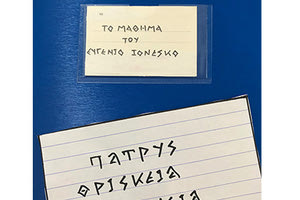 ΤΟ ΜΑΘΗΜΑ
ΤΟΥ
ΕΥΓΕΝΙΟ ΙΟΝΕΣΚΟ
ΠΑΤΡΥΣ
ΘΡΙΣΚΕΙΑ